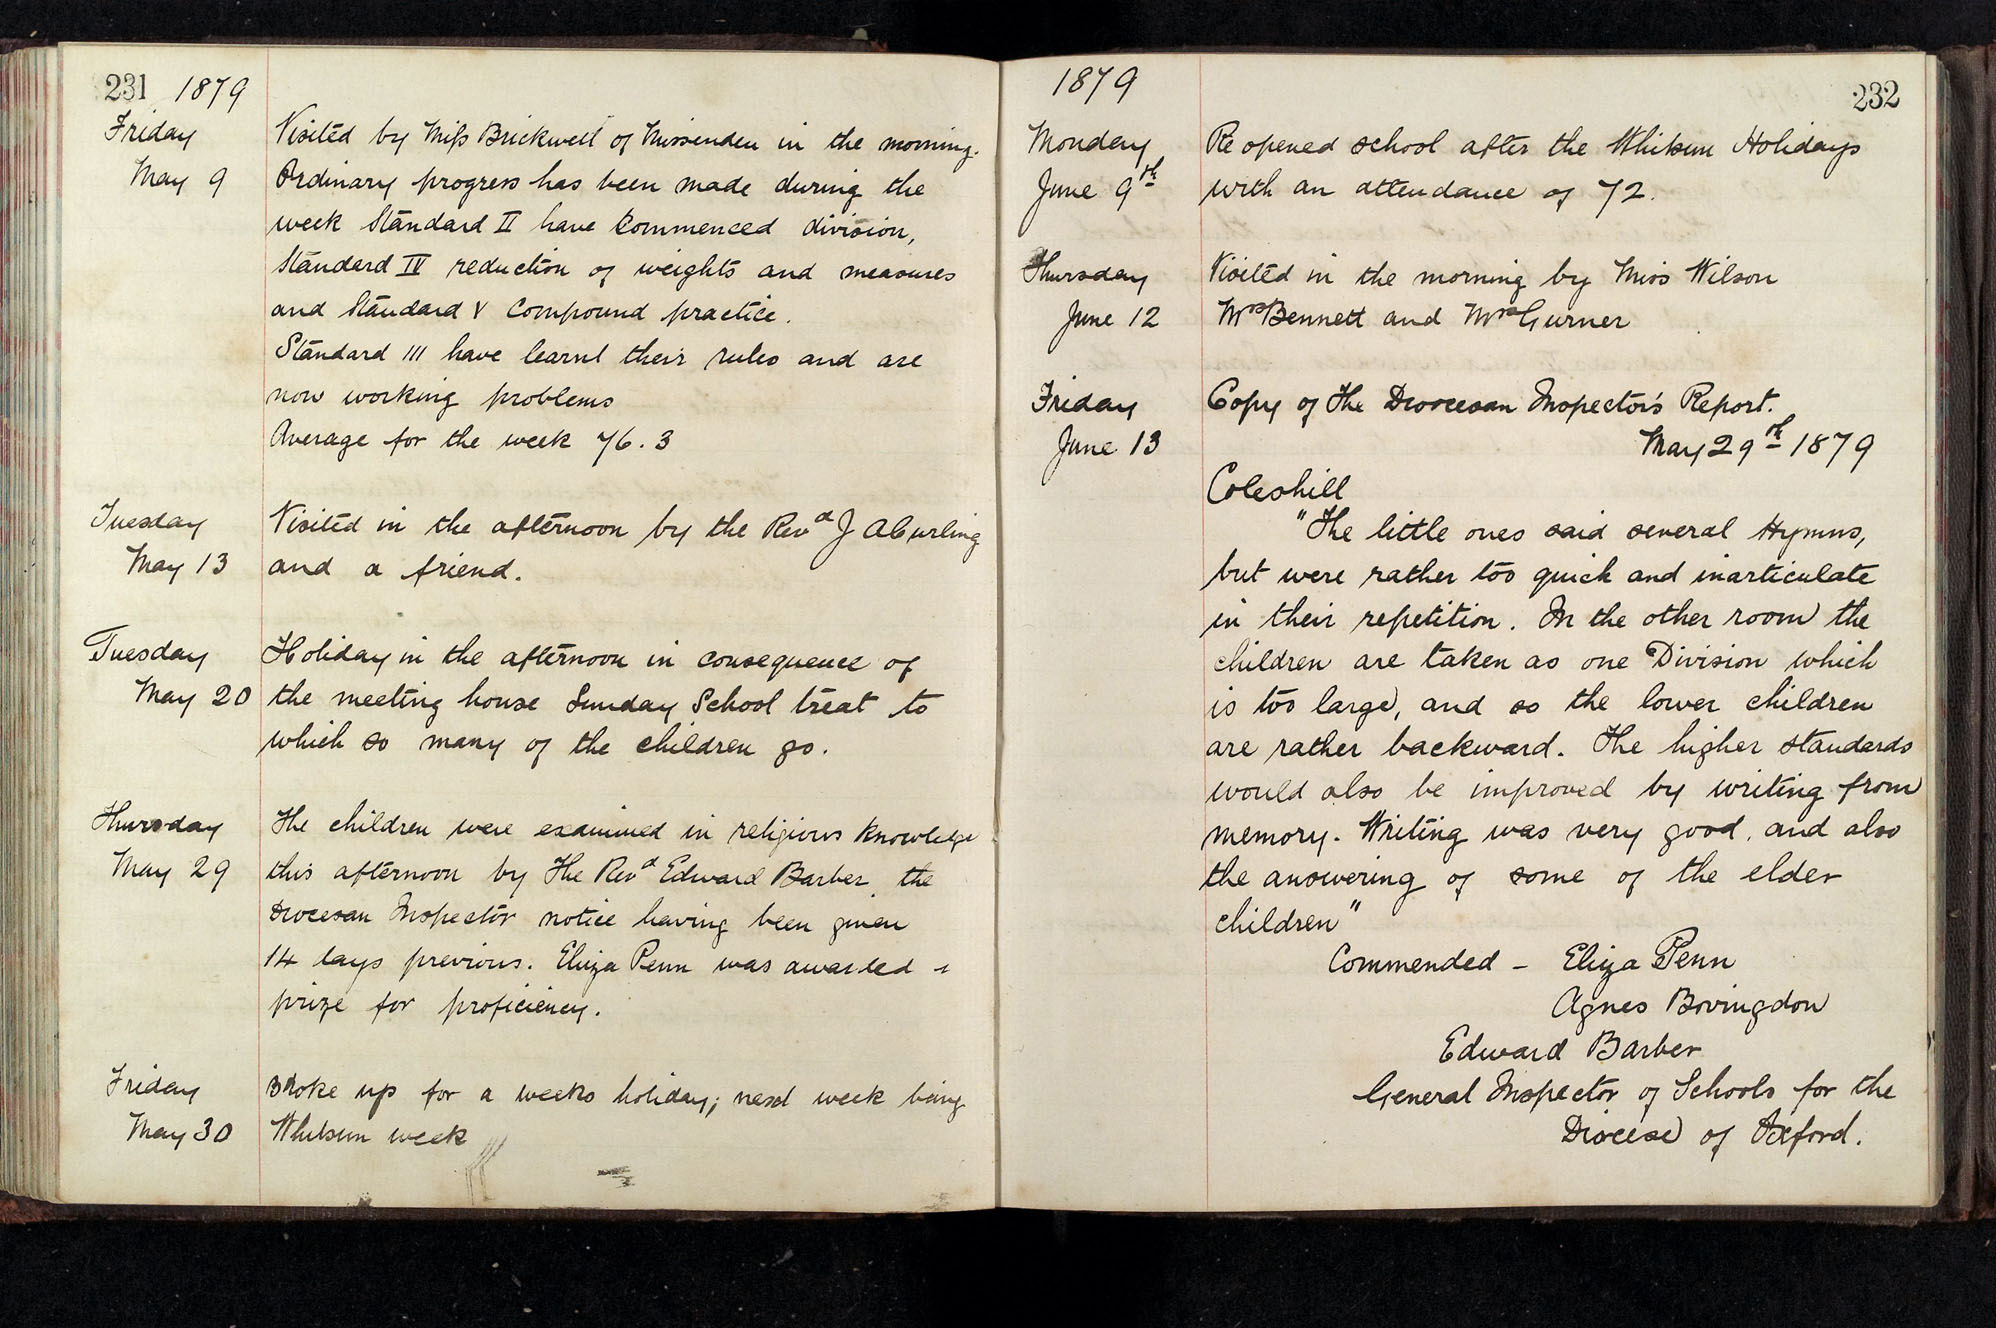 231 1879
Friday
May 9
Visited by Miss Brickwell of Missenden in the morning.
Ordinary progress has been made during the
week Standard II have commenced division,
Standard IV reduction of weights and measures
and Standard V Compound practice.
Standard III have learnt their rules and are
now working problems
Average for the week 76.3
Tuesday
May 13
Visited in the afternoon by the Revd J A Curling
and a friend.
Tuesday
May 20
Holiday in the afternoon in consequence of
the meeting house Sunday School treat to
which so many of the children go.
Thursday
May 29
The children were examined in religious knowledge
this afternoon by The Revd Edward Barber, the
Diocesan Inspector notice having been given
14 days previous. Eliza Penn was awarded a
prize for proficiency.
Friday
May 30
Broke up for a weeks holiday; next week being
Whitsun week
1879 232
Monday
June 9th
Re opened school after the Whitsun Holidays
with an attendance of 72.
Thursday
June 12
Visited in the morning by Miss Wilson
Mrs Bennett and Mrs Gurner
Friday
June 13
Copy of The Diocesan Inspector's Report.
May 29th 1879
Coleshill
"The little ones said several Hymns,
but were rather too quick and inarticulate
in their repetition. In the other room the
children are taken as one Division which
is too large, and so the lower children
are rather backward. The higher standards
would also be improved by writing from
memory. Writing was very good, and also
the answering of some of the elder
children"
Commended - Eliza Penn
Agnes Bovingdon
Edward Barber
General Inspector of Schools for the
Diocese of Oxford.